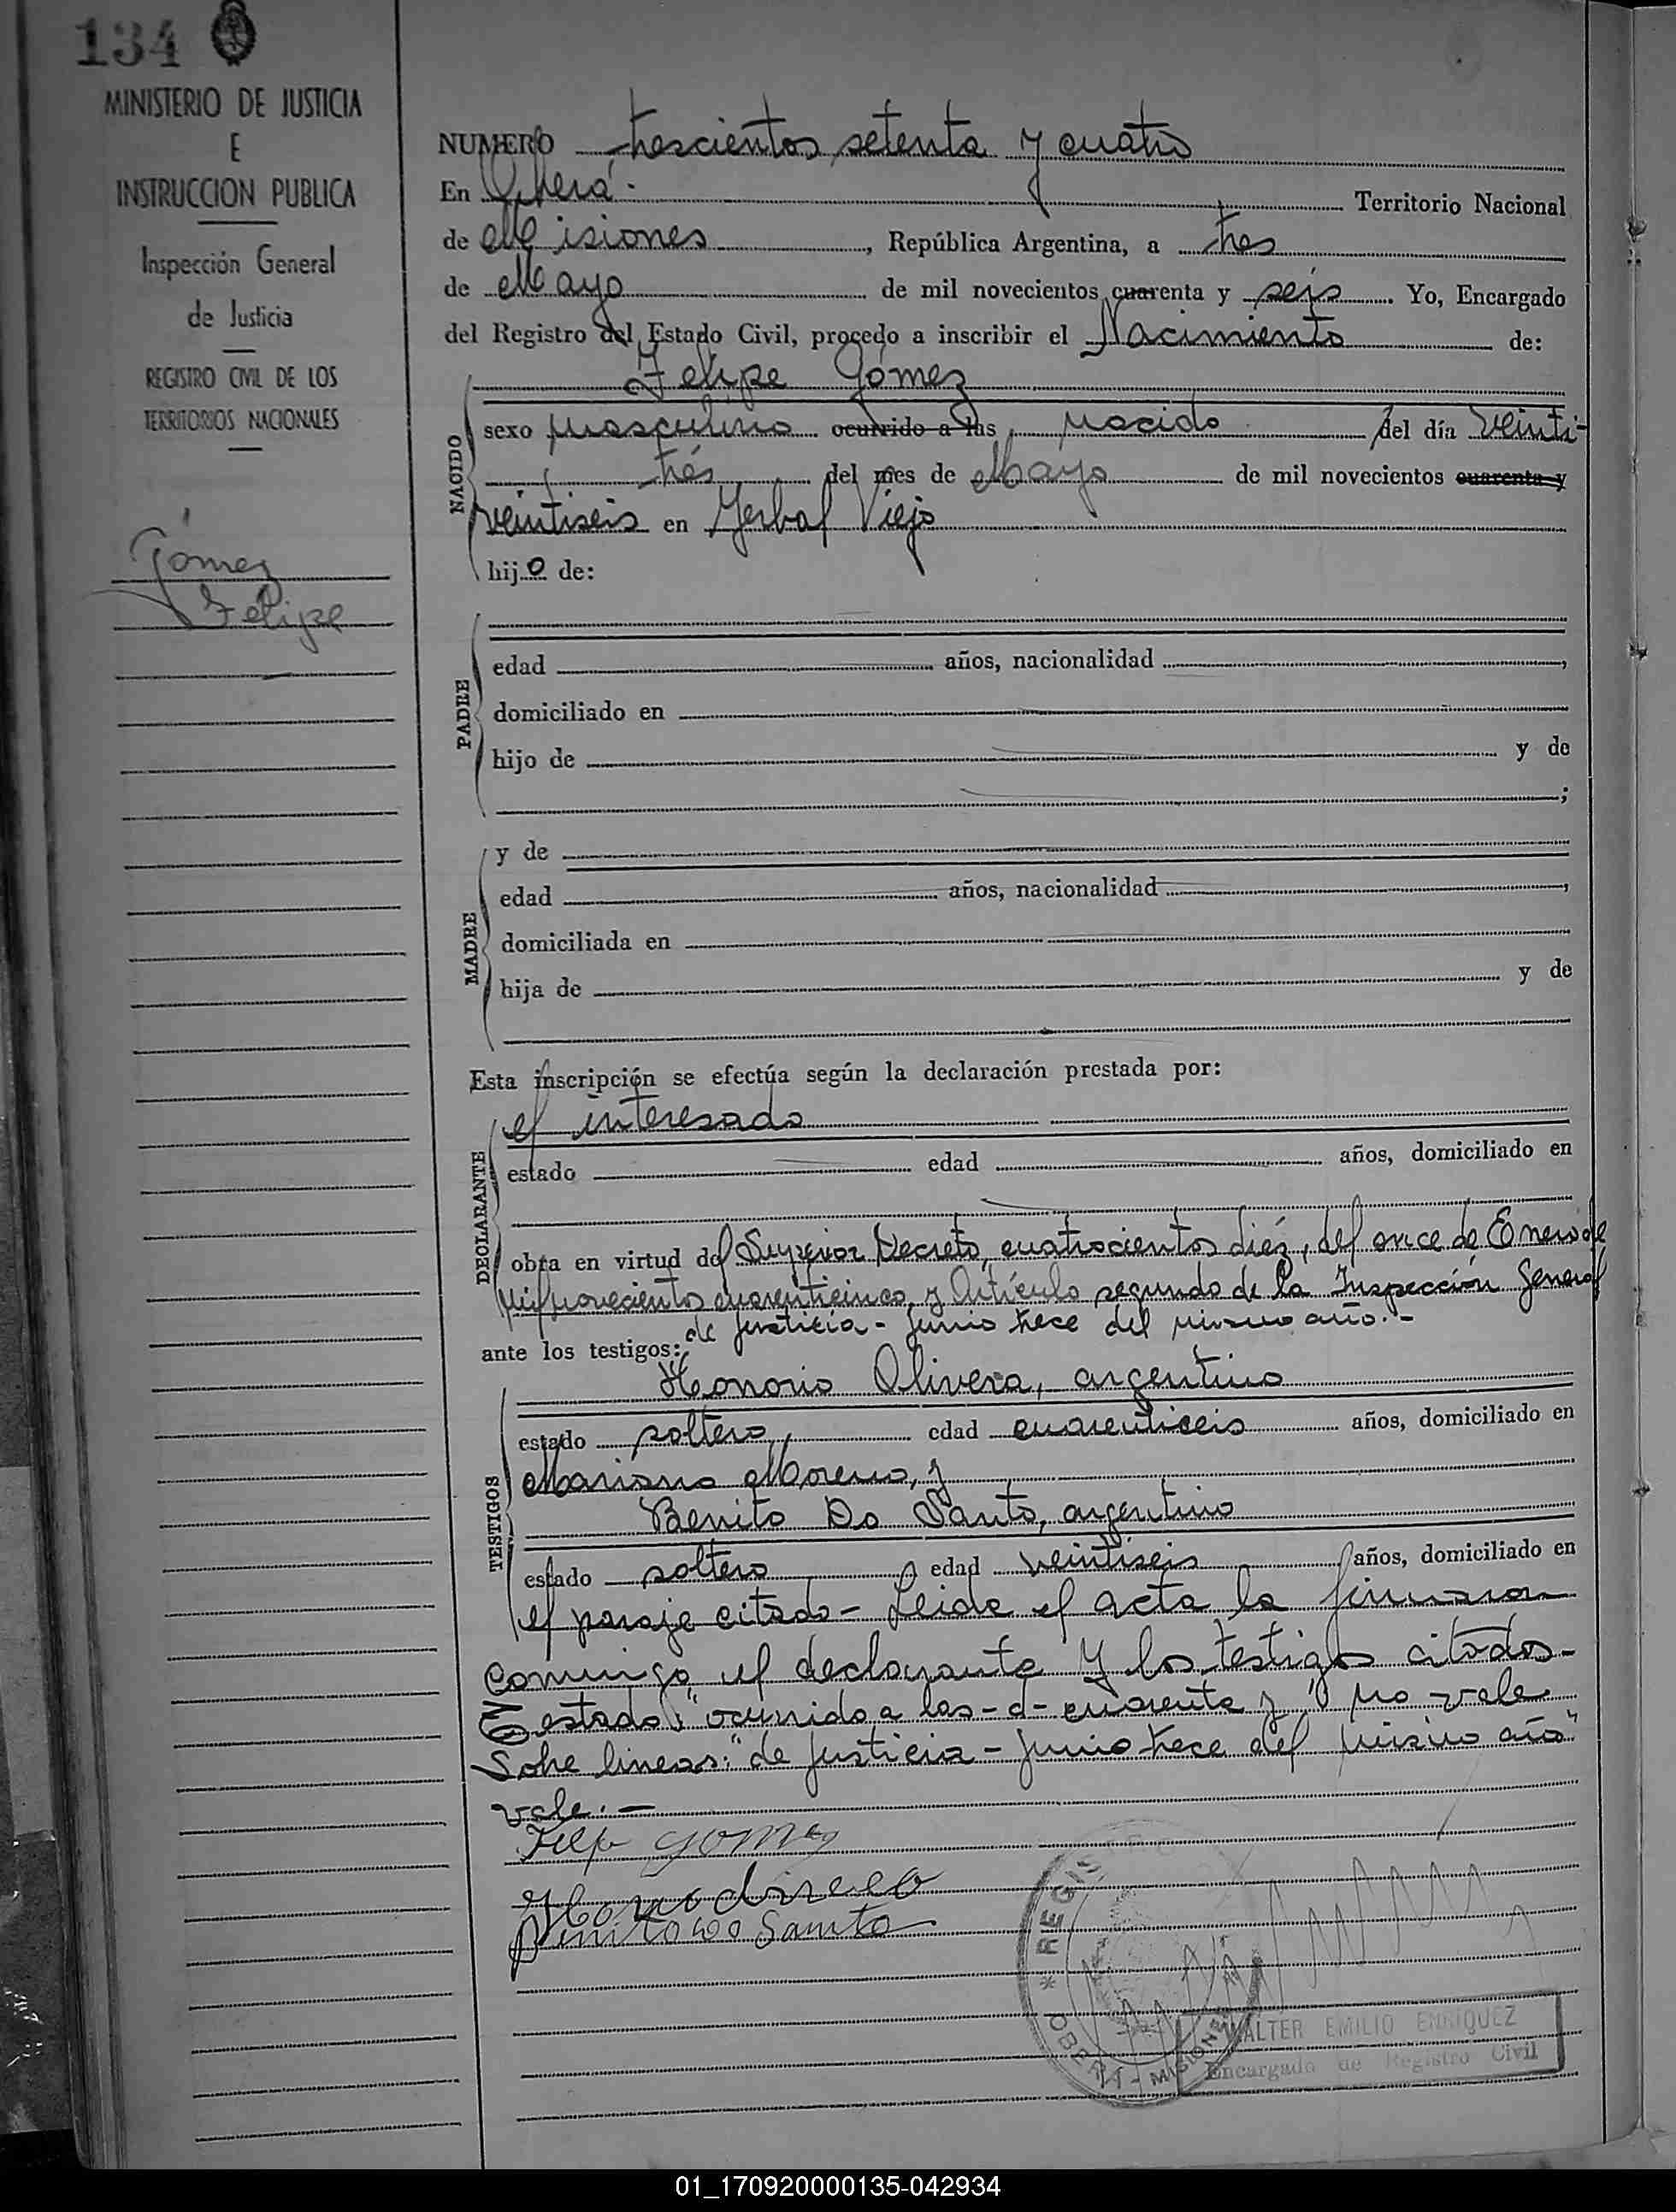 134
MINISTERIO DE JUSTICIA
E
INSTRUCCION PUBLICA
Inspección General
de Justicia
REGISTRO CIVIL DE LOS
TERRITORIOS NACIONALES
Gómez
Felipe
NUMERO trescientos setenta y cuatro
En Oberá.- Territorio Nacional
de Misiones, República Argentina, a tres
de Mayo de mil novecientos cuarenta y seis. Yo, Encargado
del Registro del Estado Civil, procedo a inscribir el Nacimiento de:
NACIDO
Felipe Gómez
sexo masculino ocurrido a las nacido del día veinti-
trés del mes de Mayo de mil novecientos cuarenta y
veintiseis en Yerbal Viejo
hijo de:
PADRE
edad años, nacionalidad ,
domiciliado en
hijo de y de
;
MADRE
y de
edad años, nacionalidad ,
domiciliada en
hija de y de
Esta inscripción se efectúa según la declaración prestada por:
DECLARANTE
el interesado
estado edad años, domiciliado en
obra en virtud del Superior Decreto, cuatrocientos diéz, del once de Enero de
mil novecientos cuarenticinco, y Artículo segundo de la Inspección General
de Justicia - Junio trece del mismo año.-
ante los testigos:
TESTIGOS
Honorio Olivera, argentino
estado soltero, edad cuarenticeis años, domiciliado en
Mariano Moreno, y
Benito Do Santo, argentino
estado soltero edad veintiseis años, domiciliado en
el paraje citado- Leida el acta la firmaron
conmigo el declarante y los testigos citados-
Testado: "ocurrido a las-d-cuarenta y" no vale
Sobre lineas: "de Justicia - Junio trece del mismo año"
vale.-
Felip gomez
Benito do Santo
* REGIS
OBERA - MISIONES
WALTER EMILIO ENRIQUEZ
Encargado de Registro Civil
01_170920000135-042934